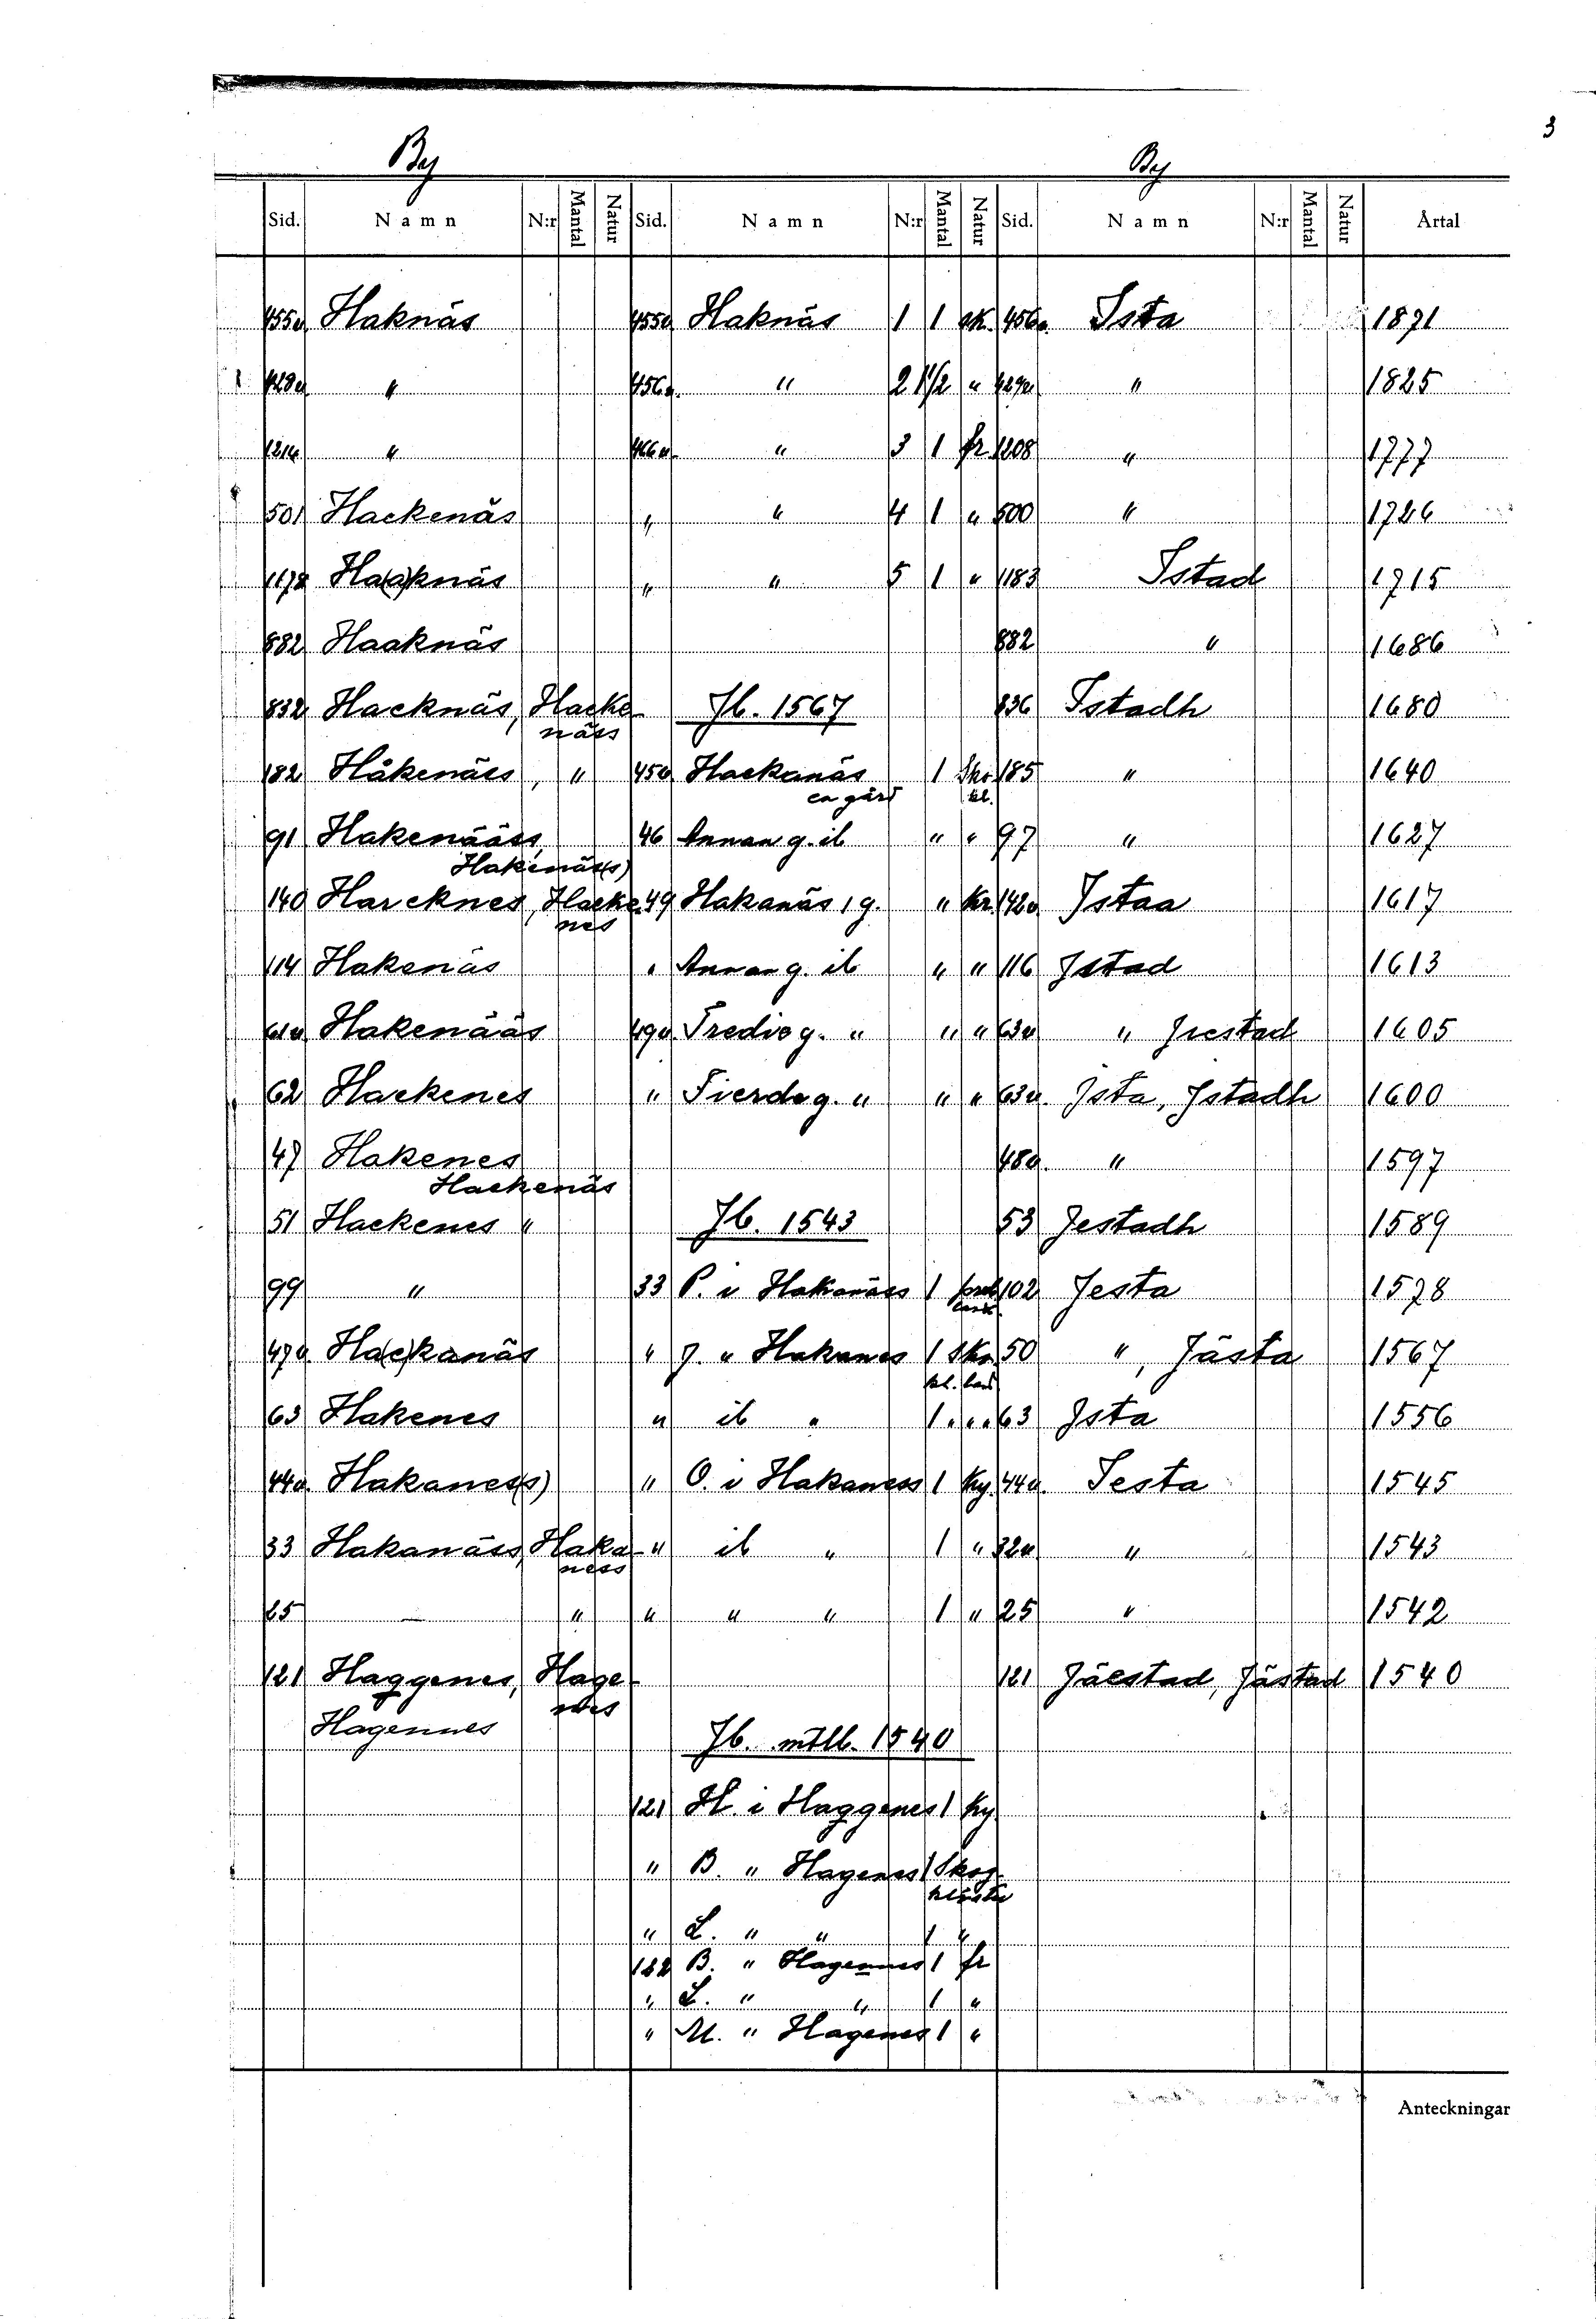 3
By By
Sid. Namn N:r Mantal Natur Sid. Namn N:r Mantal Natur Sid. Namn N:r Mantal Natur Årtal
Haknäs Haknäs 1 1 sk. 456 Ista 1871
" 456 " 2 1 1/2 " " 1825
" " 3 1 fr. 1208 " 1777
501 Hackenäs " " 4 1 " 500 " 1726
1178 Ha(a)knäs " " 5 1 " 1183 Istad 1715
882 Haaknäs 882 " 1686
832 Hacknäs, Hacke- Jb. 1567 836 Istadh 1680
näss
182 Håkenäss, " 45v Hackanäs 1 Sko 185 " 1640
en gård kl.
91 Hakenääs, 46 Annan g. ib " " 97 " 1627
Hakenäs(s)
140 Harcknes, Hacke- 49 Hakanäs 1 g. " kr. 142v Istaa 1617
nes
114 Hakenäs " Annan g. ib " " 116 Jstad 1613
61v Hakenääs 49v Tredie g. " " " 63v " Jrestad 1605
62 Hackenes " Fierde g. " " " 63v. Jsta, Jstadh 1600
47 Hakenes 48v. " 1597
Hackenäs
51 Hackenes " Jb. 1543 53 Jestadh 1589
99 " 33 P. i Hakanäss 1 102 Jesta 1578
47v. Ha(c)kanäs " J. " Hakanes 1 Sko 50 ", Jästa 1567
kl.
63 Hakenes " ib " 1 " " " 63 Jsta 1556
44v. Hakanes(s) " O. i Hakaness 1 ky. 44v. Iesta 1545
33 Hakanäss, Haka- " ib " 1 " 32v " 1543
ness
25 — " " " " 1 " 25 " 1542
121 Haggenes, Hage- 121 Jäestad, Jästad 1540
nes
Hagennes Jb. mtlb. 1540
121 H. i Haggenes 1 ky
" B. " Hagenes 1 Skog
kloster
" L. " " 1 "
122 B. " Hagennes 1 fr
" L. " " 1 "
" M. " Hagenes 1 "
Anteckningar